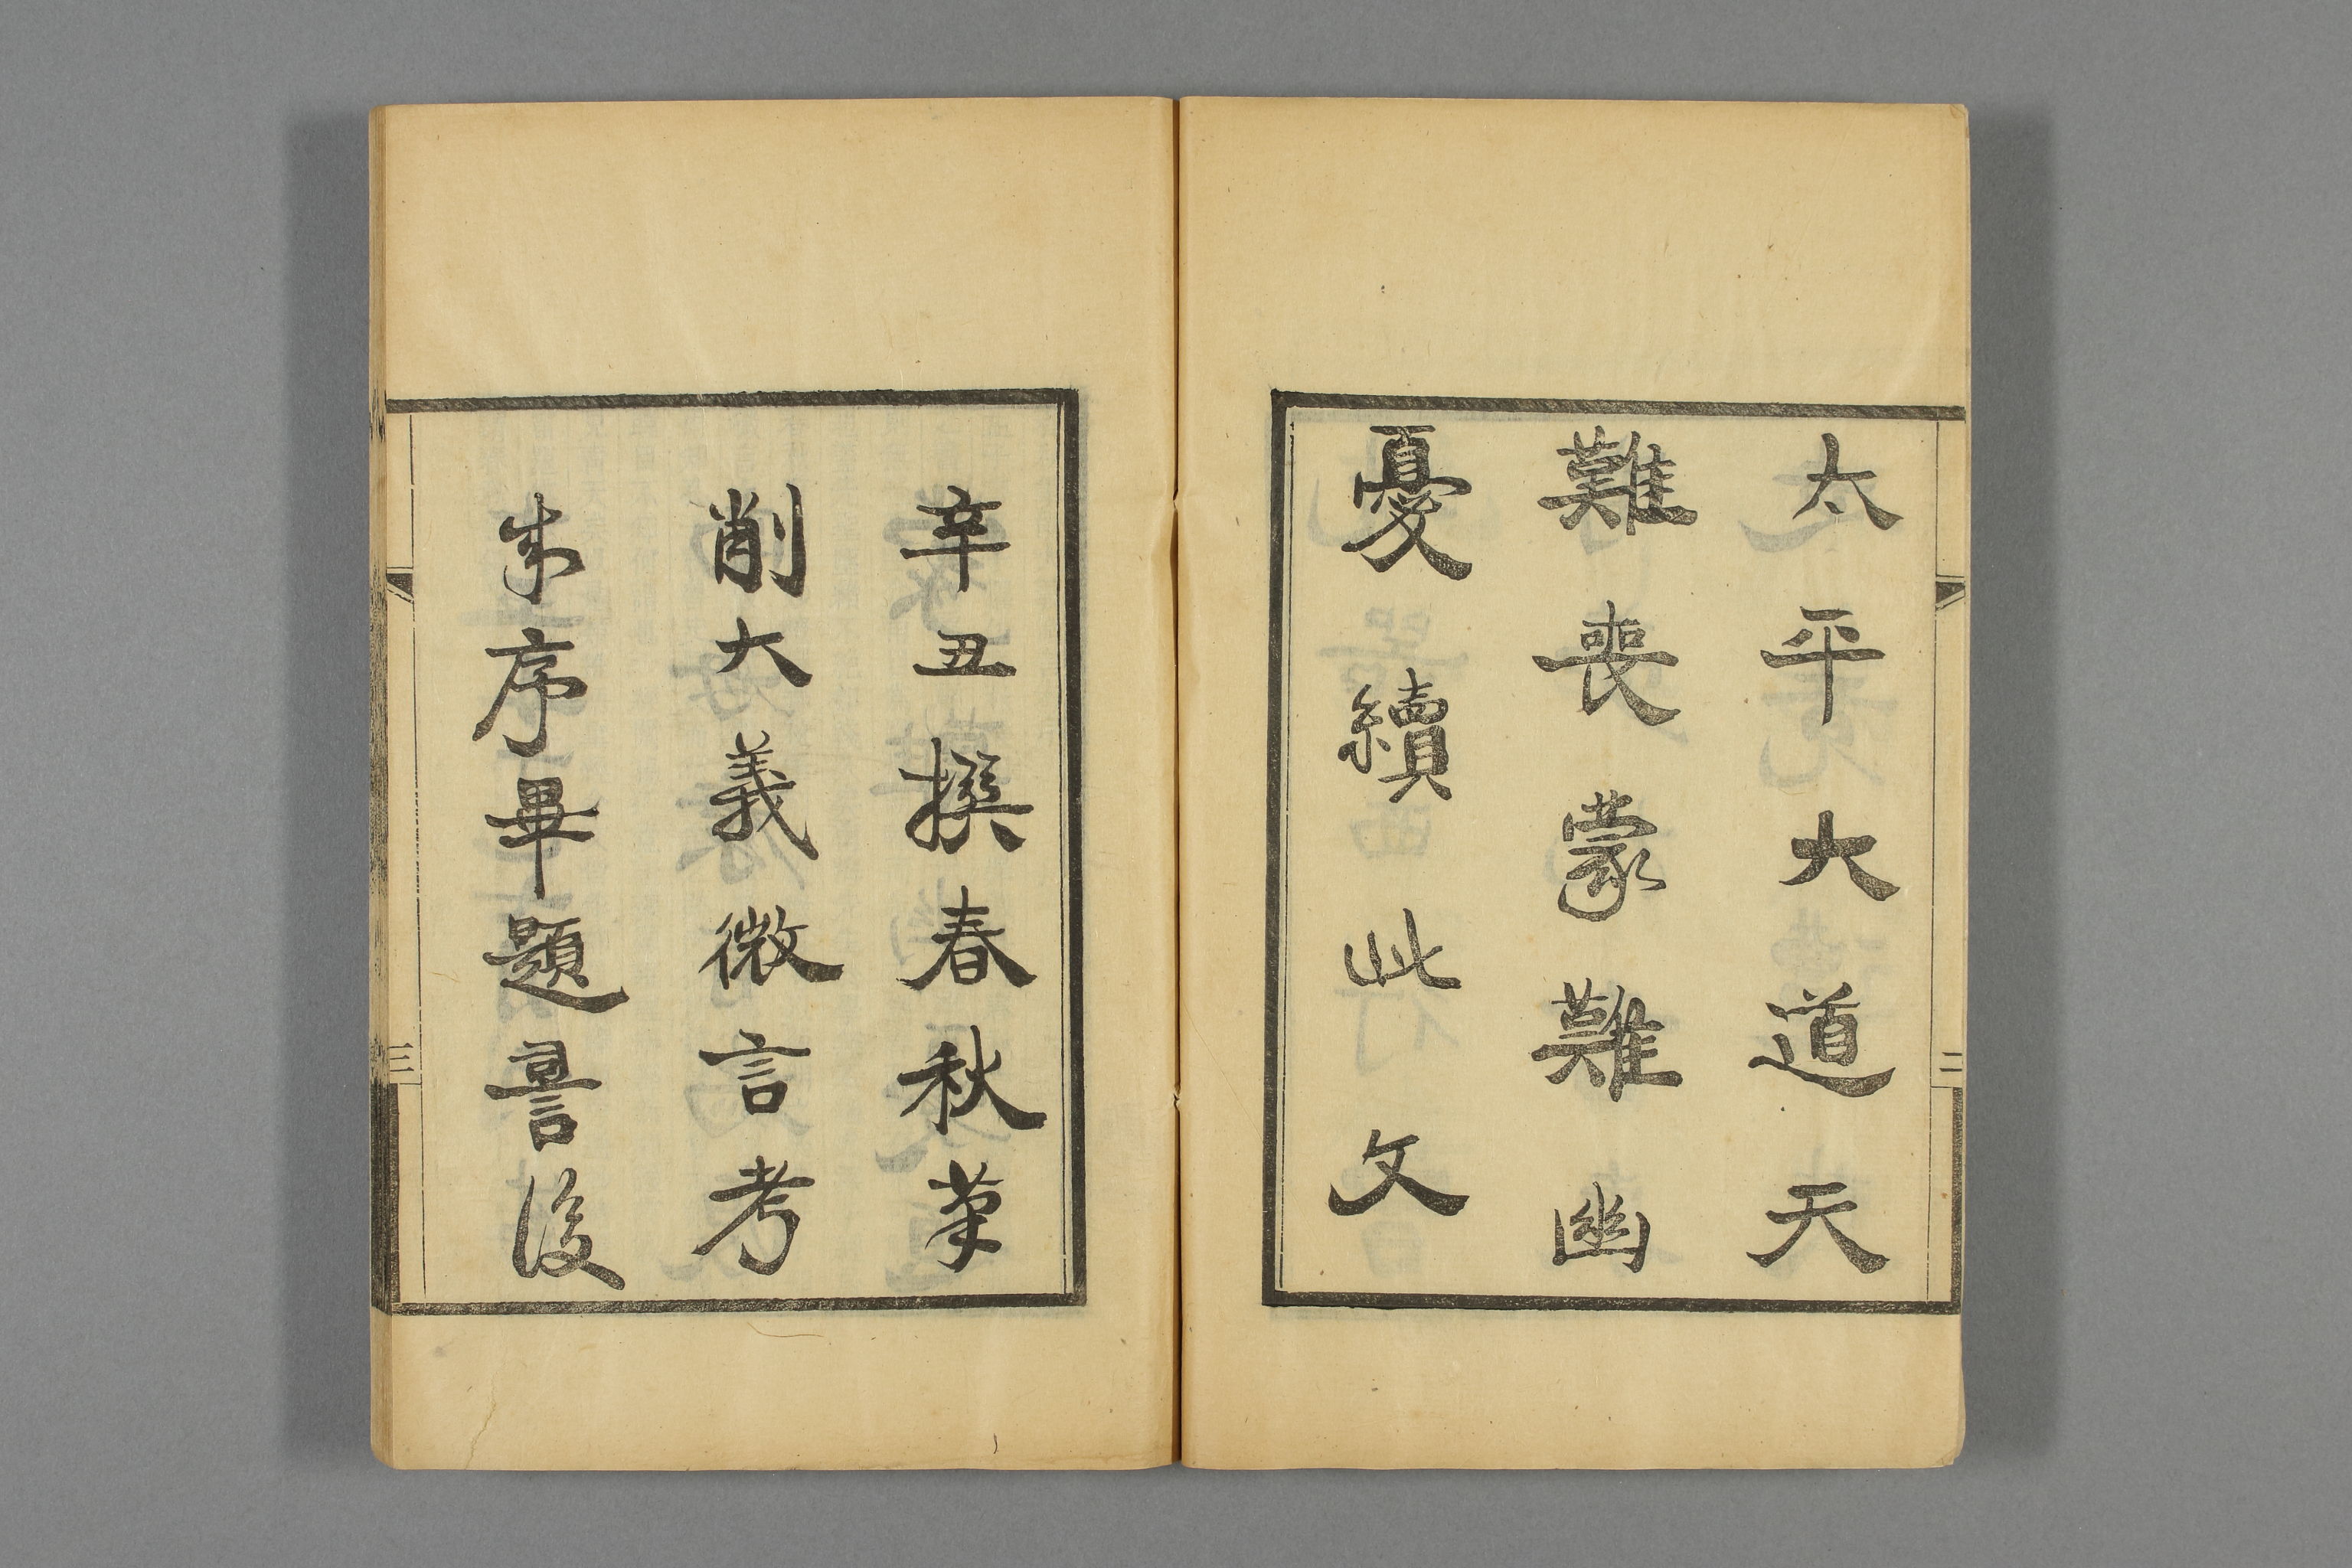 太平大道天
難喪蒙難幽
憂續此文
二
辛丑撰春秋筆
削大義微言考
成序畢題書後
三